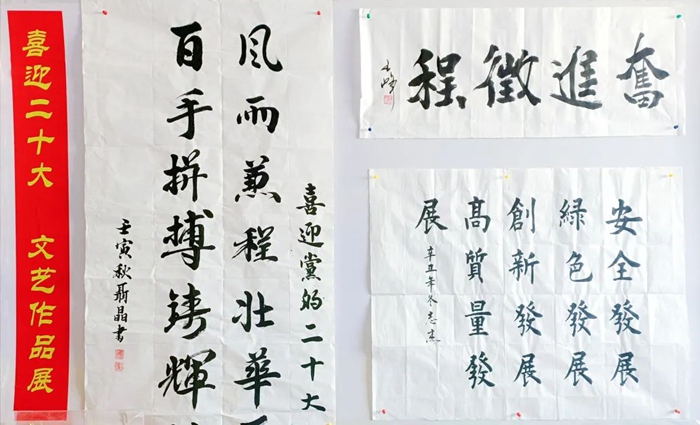 喜迎二十大 文艺作品展
喜迎黨的二十大
风雨兼程壮華
百年拼搏鑄輝
壬寅秋聶晶書
奮進徵程
安全發展
綠色發展
創新發展
高質量發
展
辛丑年冬志杰